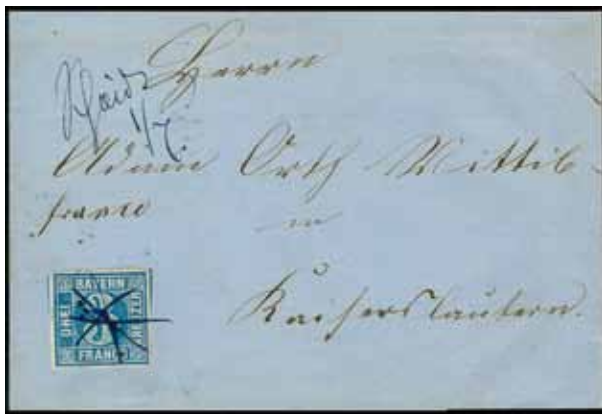 Herrn
1/7
Adam Orth Wittib
franco
in
Kaiserslautern.
BAYERN
DREI
KREUZER
FRANCO